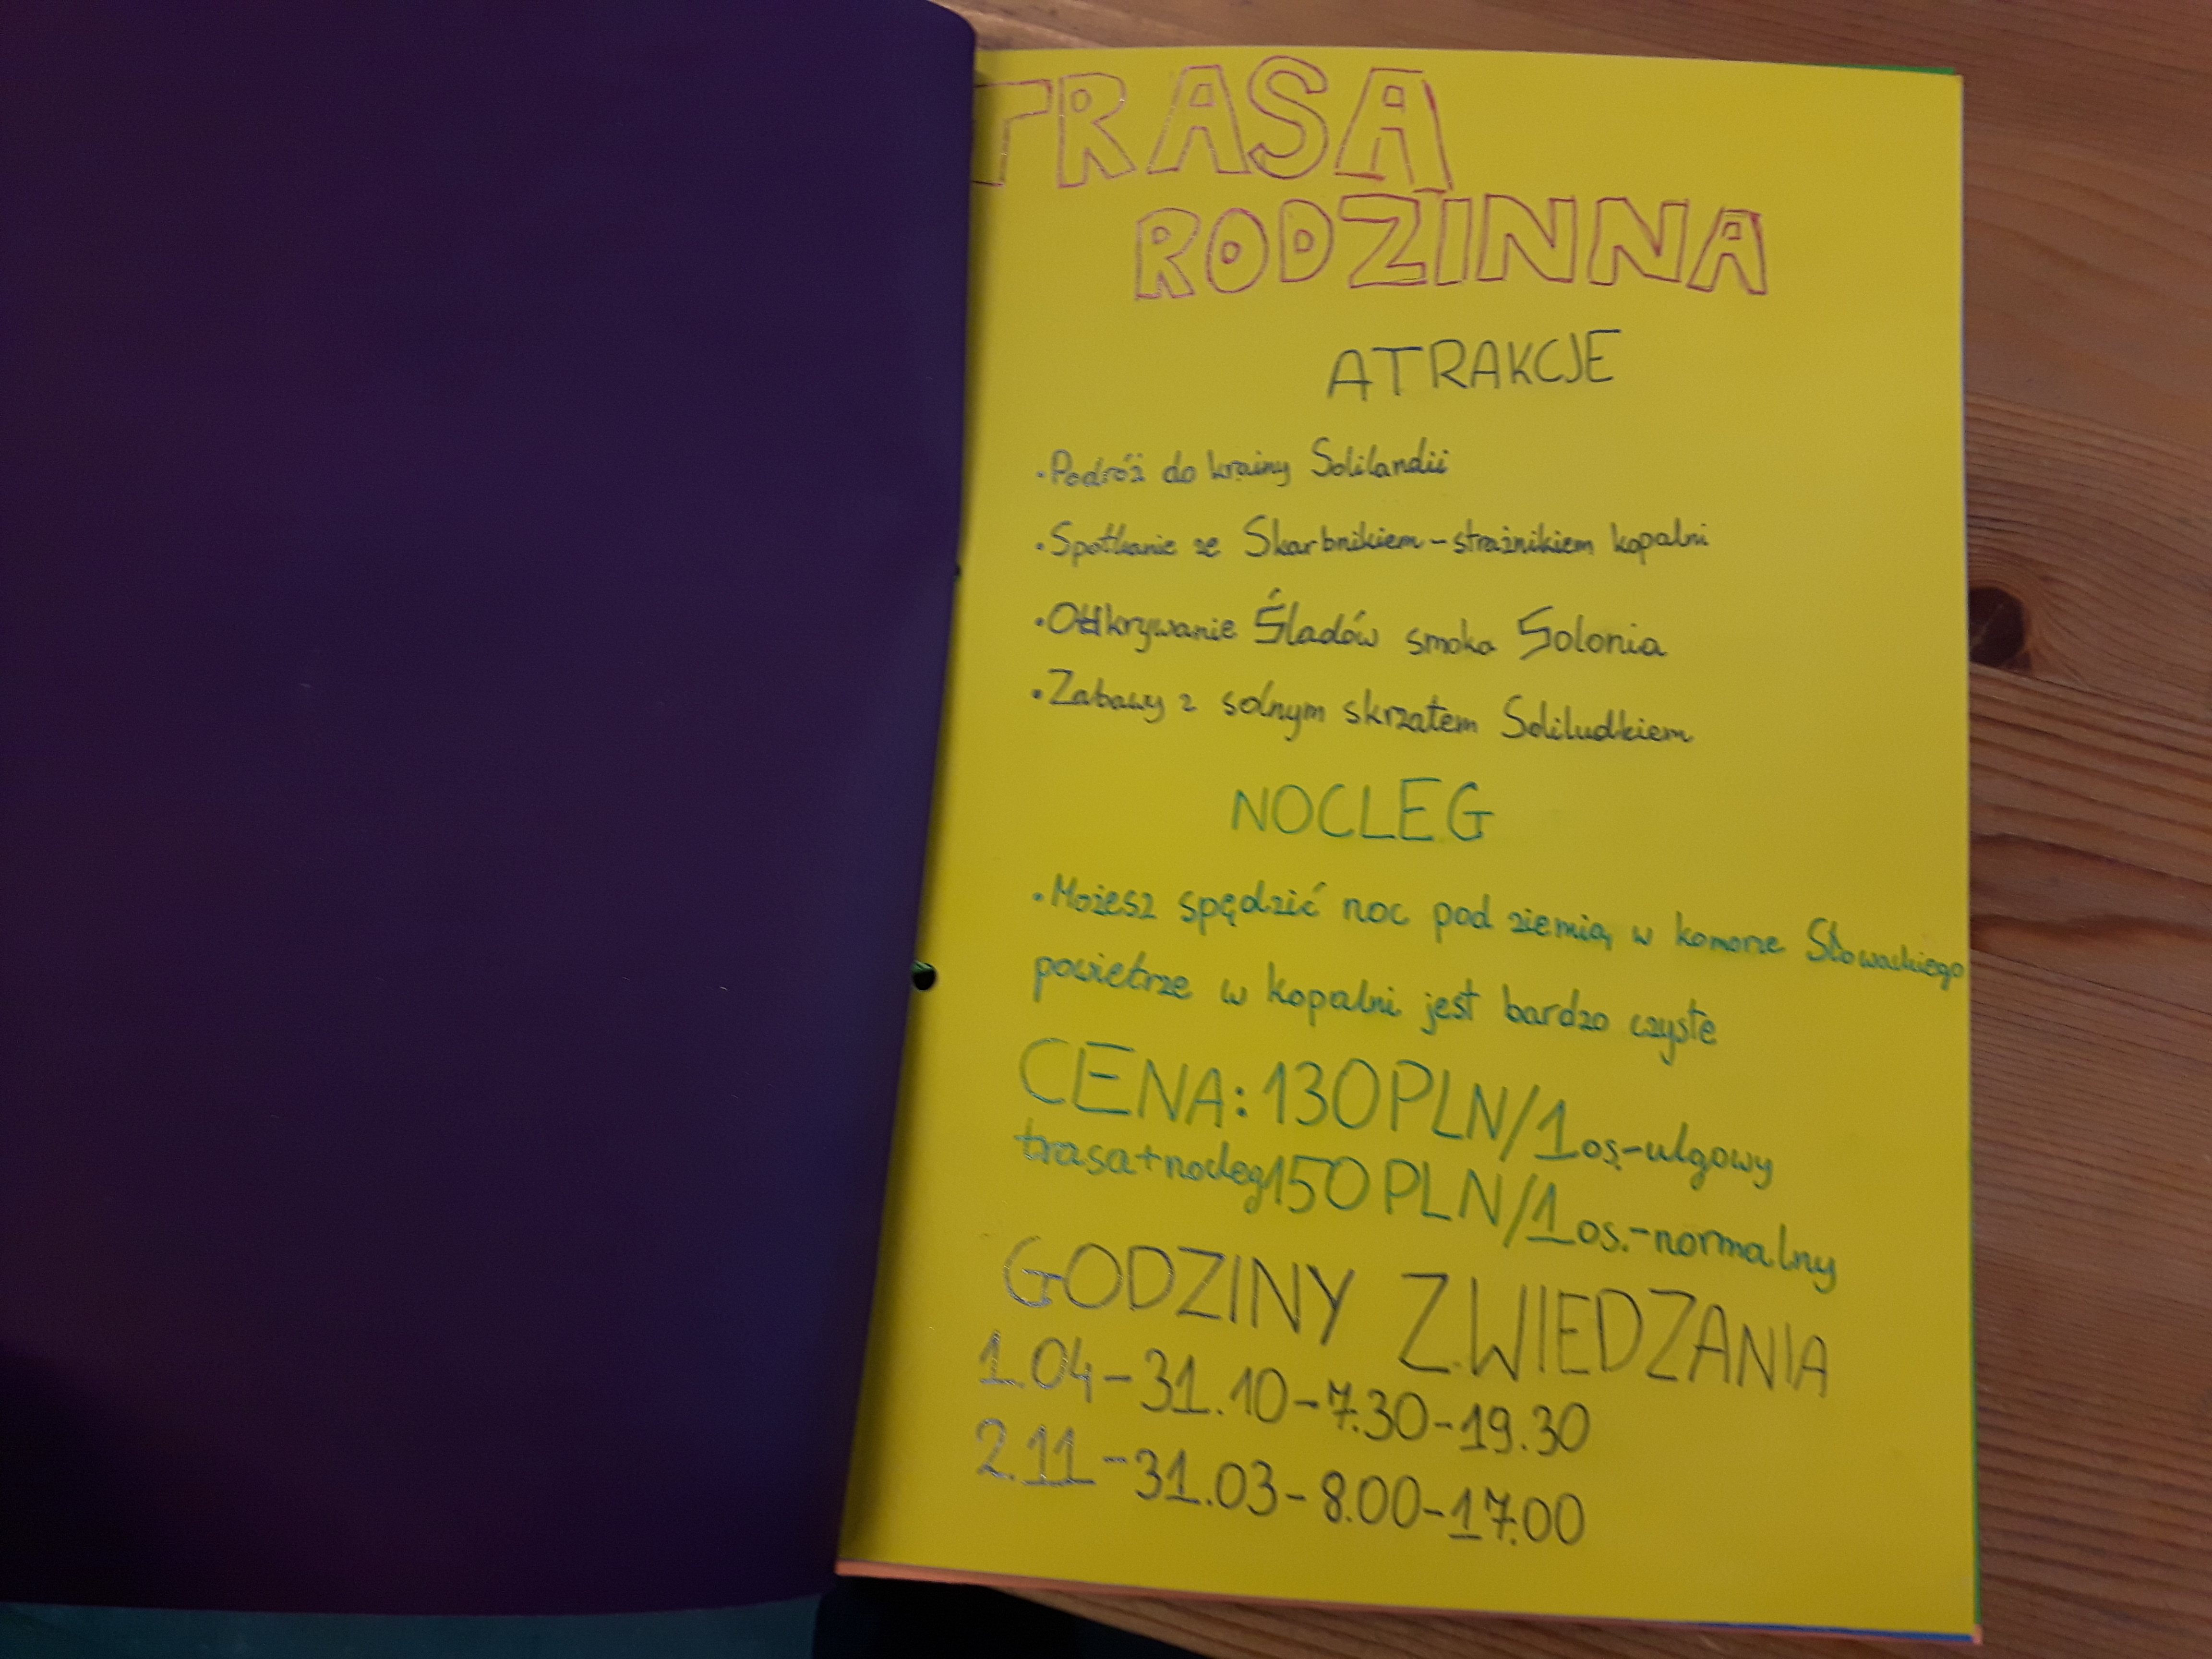 TRASA
RODZINNA
ATRAKCJE
•Podróż do krainy Solilandii
•Spotkanie ze Skarbnikiem-strażnikiem kopalni
•Odkrywanie Śladów smoka Solonia
•Zabawy z solnym skrzatem Soliludkiem
NOCLEG
•Możesz spędzić noc pod ziemią, w komorze Słowackiego
powietrze w kopalni jest bardzo czyste
CENA: 130PLN/1os.-ulgowy
trasa+nocleg150PLN/1os.-normalny
GODZINY ZWIEDZANIA
1.04-31.10-7.30-19.30
2.11-31.03-8.00-17.00